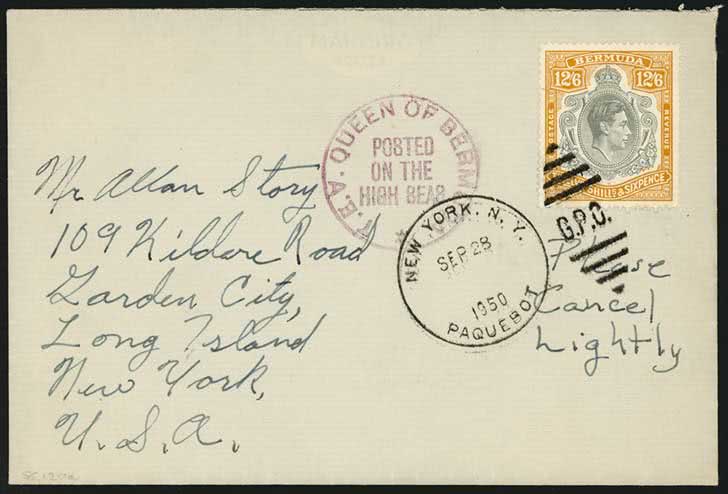 BERMUDA
12/6 12/6
POSTAGE
REVENUE
SHILLS & SIXPENCE
T.E.V. QUEEN OF BERM
POSTED
ON THE
HIGH SEAS
NEW YORK, N.Y.
SEP 28
1950
PAQUEBOT
G.P.O.
Mr Allan Story
109 Kildare Road
Garden City,
Long Island
New York,
U.S.A.
Please
Cancel
Lightly